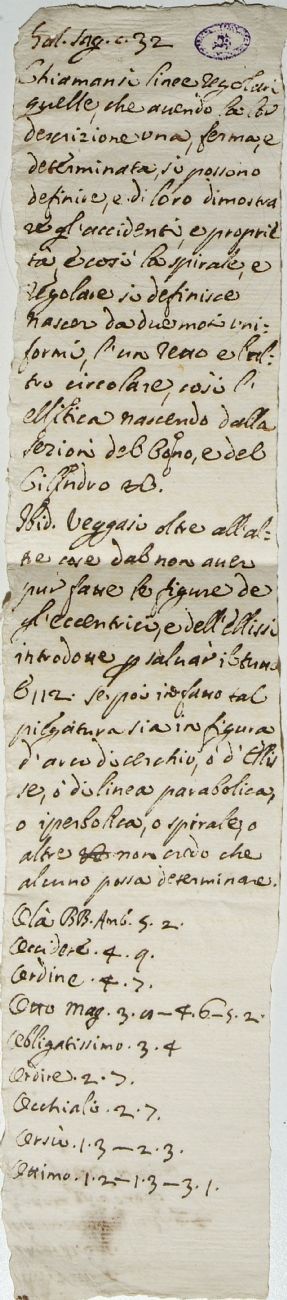 Gal. Sag. c. 32
Chiamansi linee regolari
quelle, che avendo la lor
descrizione una, ferma, e
determinata, si possono
definire, e di loro dimostra
re gl'accidenti, e proprie
tà, e così la spirale, e
regolare si definisce
nascer da due moti uni-
formi, l'un retto e l'al-
tro circolare, così l'
ellittica nascendo dalla
sezion del Cono, e del
Cilindro &c.
Ibid. Veggasi oltre all'al-
tre cose dal non aver
pur fatte le figure de
gl'eccentrici, e dell'Ellissi
introdotte p salvar il tutto
E 112. se poi in fatto tal
piegatura sia in figura
d'arco di cerchio, o d'Ellis
se, o di linea parabolica,
o iperbolica, o spirale, o
altre non credo che
alcuno possa determinare.
Olà BB. Amb. 5. 2.
Occidere. 4. 9.
Ordine. 4. 7.
Otto Mag. 3. 4. 6 – 5. 2.
Obligatissimo. 3. 4
Ordire. 2. 7.
Occhiali. 2. 7.
Orsù. 1. 3 – 2. 3.
Ottimo. 1. 2 – 1. 3 – 3. 1.